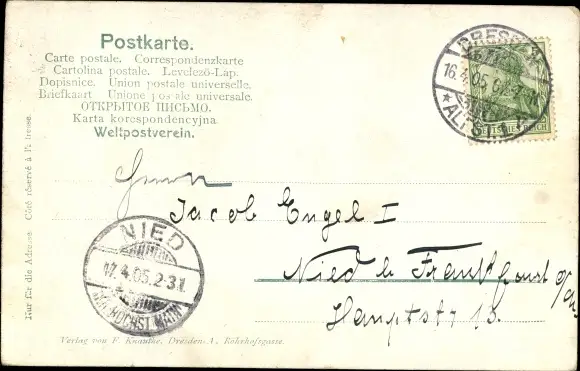 Postkarte.
Carte postale. Correspondenzkarte
Cartolina postale. Levelező-Lap.
Dopisnice. Union postale universelle.
Briefkaart Unione postale universale.
ОТКРЫТОЕ ПИСЬМО.
Karta korespondencyjna
Weltpostverein.
DRESDEN
16.4.05.
ALTST.1
DEUTSCHES REICH
Nur für die Adresse. Côté réservé à l'adresse.
Herrn
Jacob Engel I
Nied b Frankfourt a/M.
Hauptstr 13.
NIED
17.4.05.2-3N
HÖCHST MAIN
Verlag von F. Knauthe, Dresden-A. Röhrhofsgasse.